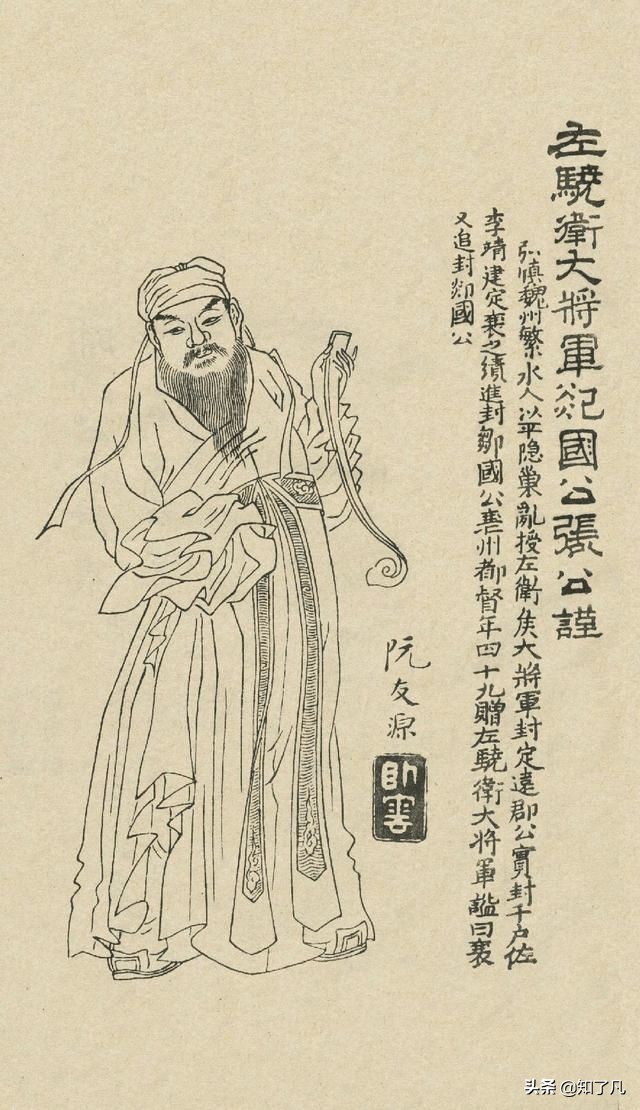 左驍衛大將軍郯國公張公謹
弘慎魏州繁水人以平隐巢亂授左衛矣大將軍封定遠郡公實封千戶佐
李靖建定襄之績進封鄒國公襄州都督年四十九贈左驍衛大將軍謚曰襄
又追封郯國公
阮友源
卧雲
头条 @知了凡